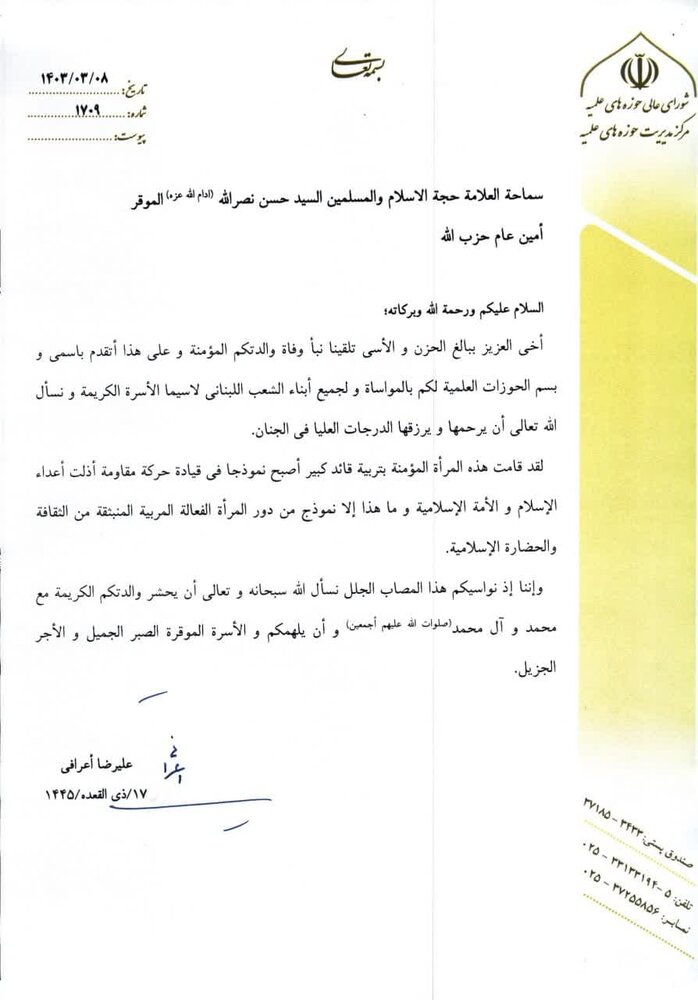 بسمه تعالی
شورای عالی حوزه های علمیه
مرکز مدیریت حوزه های علمیه
تاریخ: ۱۴۰۳/۰۳/۰۸
شماره: ۱۷۰۹
پیوست:
سماحة العلامة حجة الاسلام والمسلمین السید حسن نصرالله (ادام الله عزه) الموقر
أمین عام حزب الله
السلام علیکم ورحمة الله وبرکاته؛
أخی العزیز ببالغ الحزن و الأسی تلقینا نبأ وفاة والدتکم المؤمنة و علی هذا أتقدم باسمی و
بسم الحوزات العلمیة لکم بالمواساة و لجمیع أبناء الشعب اللبنانی لاسیما الأسرة الکریمة و نسأل
الله تعالی أن یرحمها و یرزقها الدرجات العلیا فی الجنان.
لقد قامت هذه المرأة المؤمنة بتربیة قائد کبیر أصبح نموذجا فی قیادة حرکة مقاومة أذلت أعداء
الإسلام و الأمة الإسلامیة و ما هذا إلا نموذج من دور المرأة الفعالة المربیة المنبثقة من الثقافة
والحضارة الإسلامیة.
وإننا إذ نواسیکم هذا المصاب الجلل نسأل الله سبحانه و تعالی أن یحشر والدتکم الکریمة مع
محمد و آل محمد (صلوات الله علیهم أجمعین) و أن یلهمکم و الأسرة الموقرة الصبر الجمیل و الأجر
الجزیل.
علیرضا أعرافی
۱۷/ذی القعده/۱۴۴۵
صندوق پستی: ۳۴۳۳ - ۳۷۱۸۵
تلفن: ۵ - ۳۳۱۳۳۱۹۴ - ۰۲۵
نمابر: ۳۷۲۵۵۸۵۶ - ۰۲۵